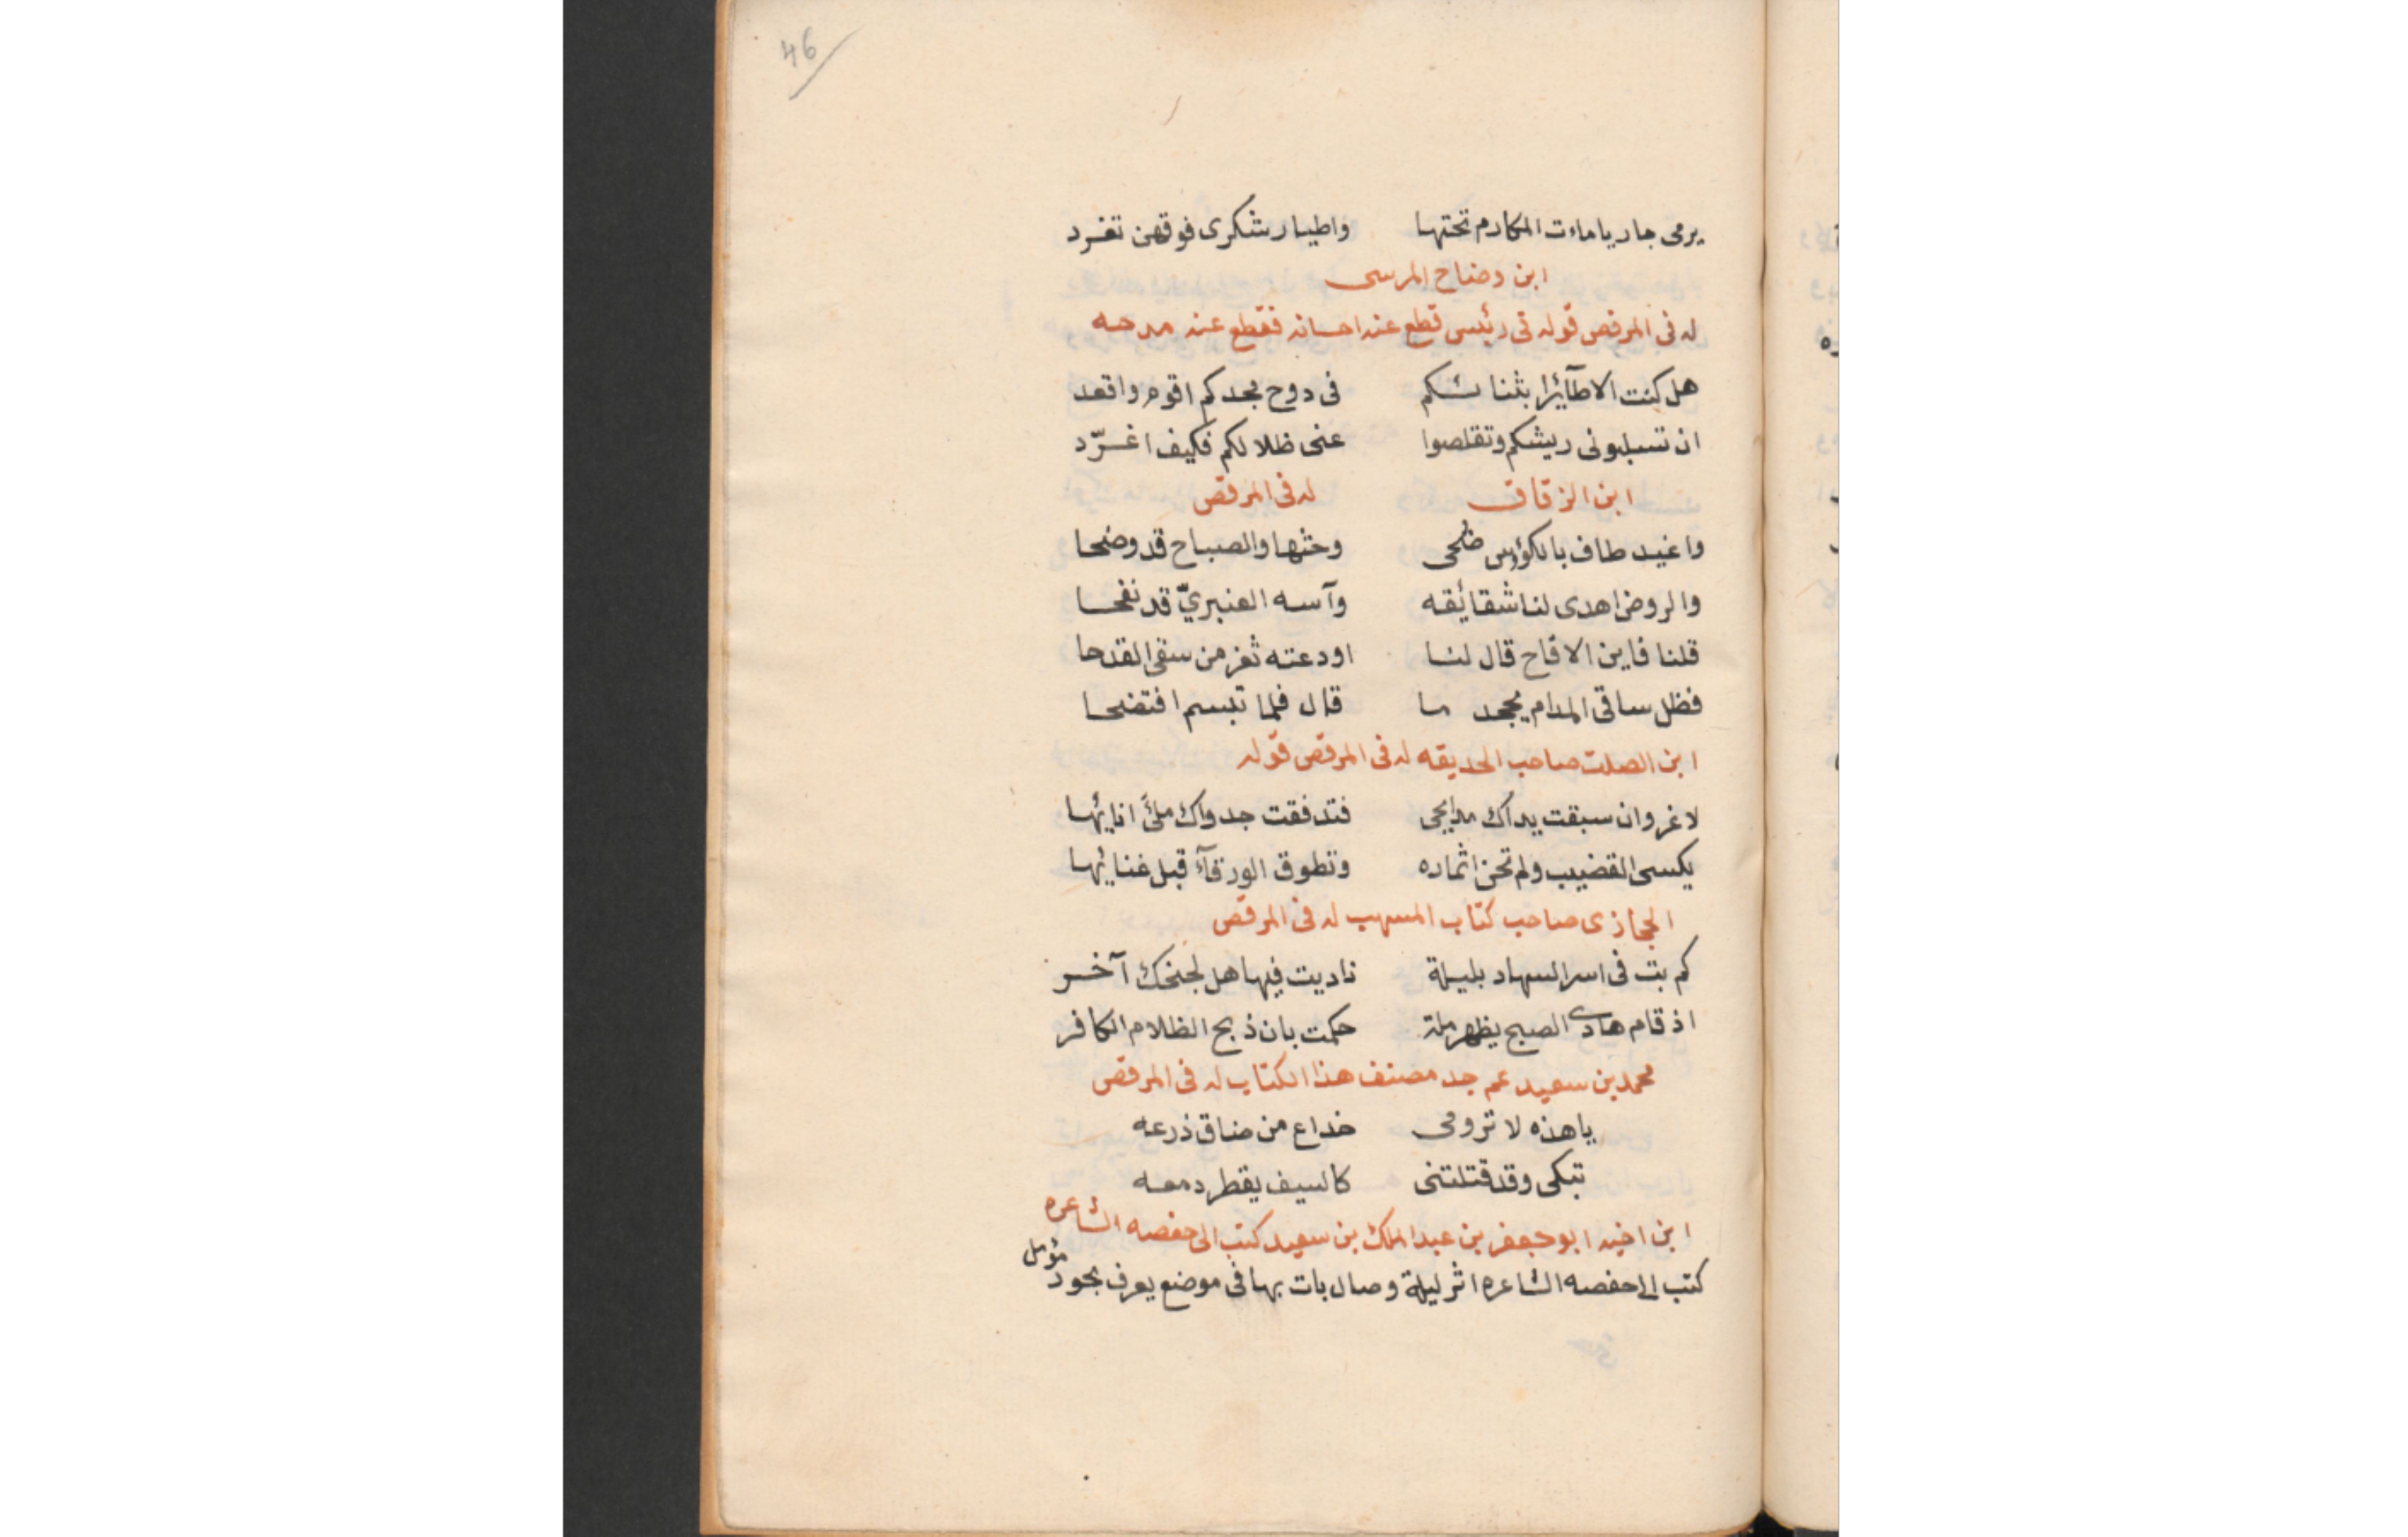 46
يرمى جاريا ماءت المكارم تحتها واطيار شكرى فوقهن تغرد
ابن وضاح المرسى
له فى المرقص قوله فى رئيس قطع عنه احسانه فقطع عنه مدحه
هل كنت الا طآئرا بثنائكم فى دوح مجدكم اقوم واقعد
ان تسلبونى ريشكم وتقلصوا عنى ظلالكم فكيف اغرّد
ابن الزقاق له فى المرقص
واغيد طاف بالكؤس ضحى وحثها والصباح قد وضحا
والروض اهدى لنا شقائقه وآسه العنبريّ قد نفحا
قلنا فاين الاقاح قال لنا اودعته ثغر من سقى القدحا
فظل ساقى المدام يجحد ما قال فلما تبسم افتضحا
ابن الصلت صاحب الحديقه له فى المرقص قوله
لا غروان سبقت يداك مدايحى فتدفقت جدواك ملئ انائها
يكسى القضيب ولم تحن اثماره وتطوق الورقآء قبل غنائها
الحجازى صاحب كتاب المسهب له فى المرقص
كم بت فى اسر السهاد بليلة ناديت فيها هل لجنحك آخر
اذ قام هادى الصبح يظهر ملة حكمت بان ذبح الظلام الكافر
محمد بن سعيد عم جد مصنف هذا الكتاب له فى المرقص
يا هذه لا ترومى خداع من ضاق ذرعه
تبكى وقد قتلتنى كالسيف يقطر دمعه
ابن اخيه ابو جعفر بن عبد الملك بن سعيد كتب الى حفصه الشاعره
كتب الى حفصه الشاعره اثر ليلة وصال بات بها فى موضع يعرف بجود مؤمل